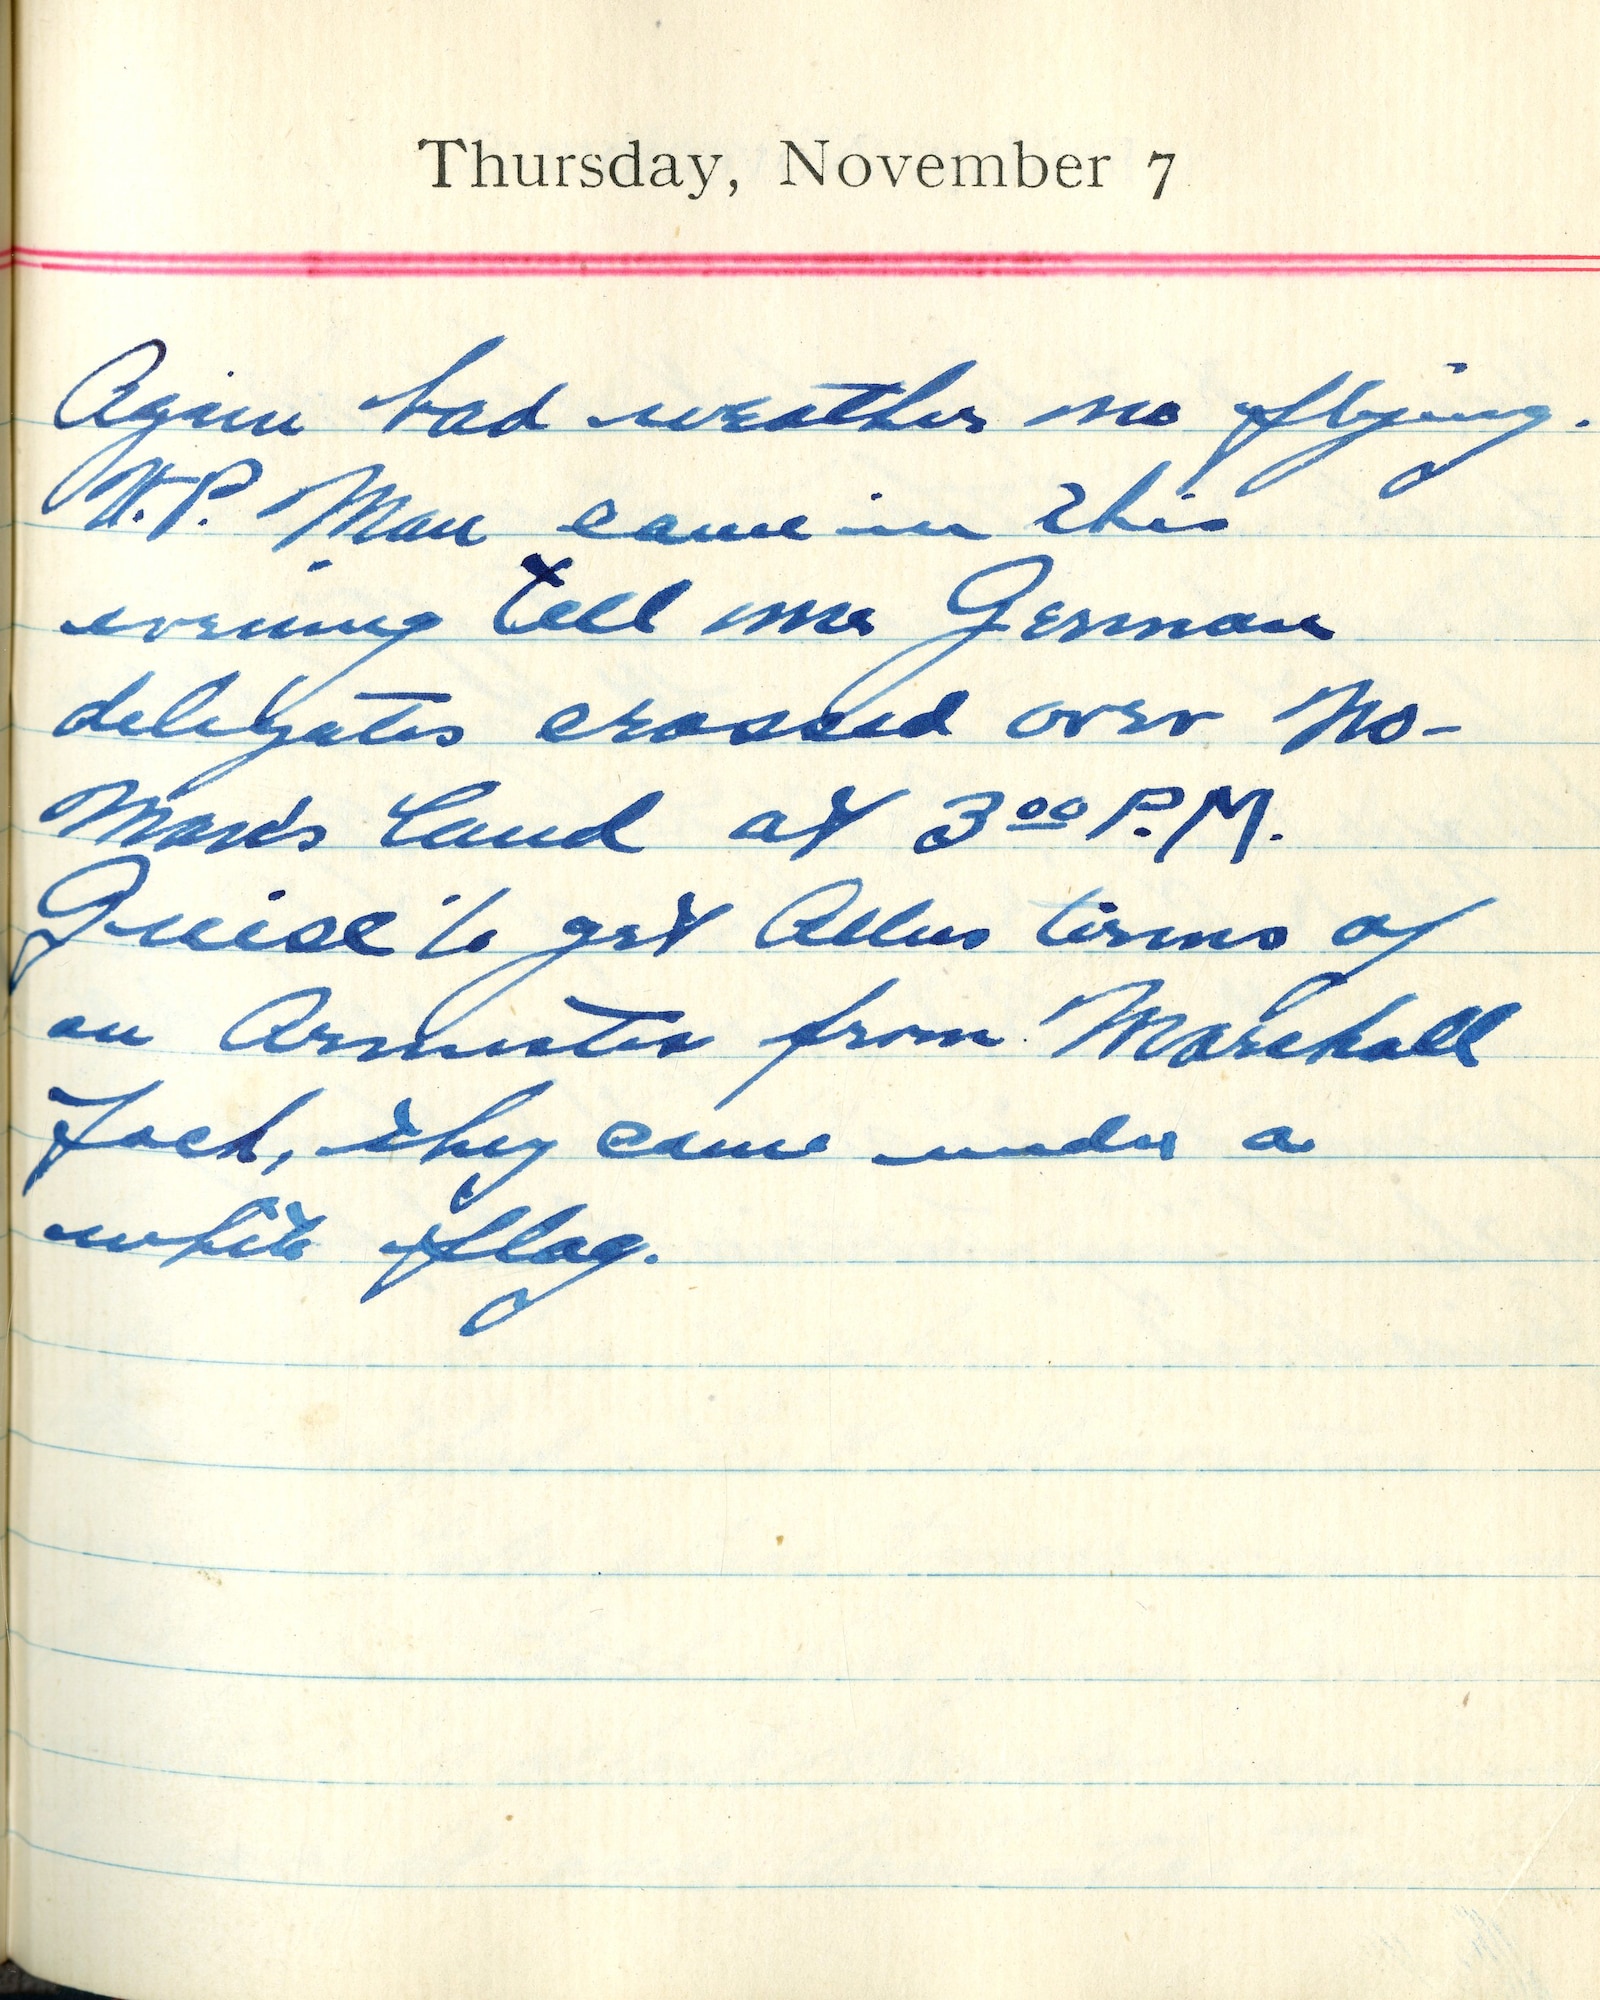 Thursday, November 7
Again bad weather no flying.
Man came in this
evening tell me German
delegates crossed over No-
Man's Land at 3 00 P.M.
Guise to get Allies terms of
an Armistice from Marshall
Foch, they came under a
white flag.